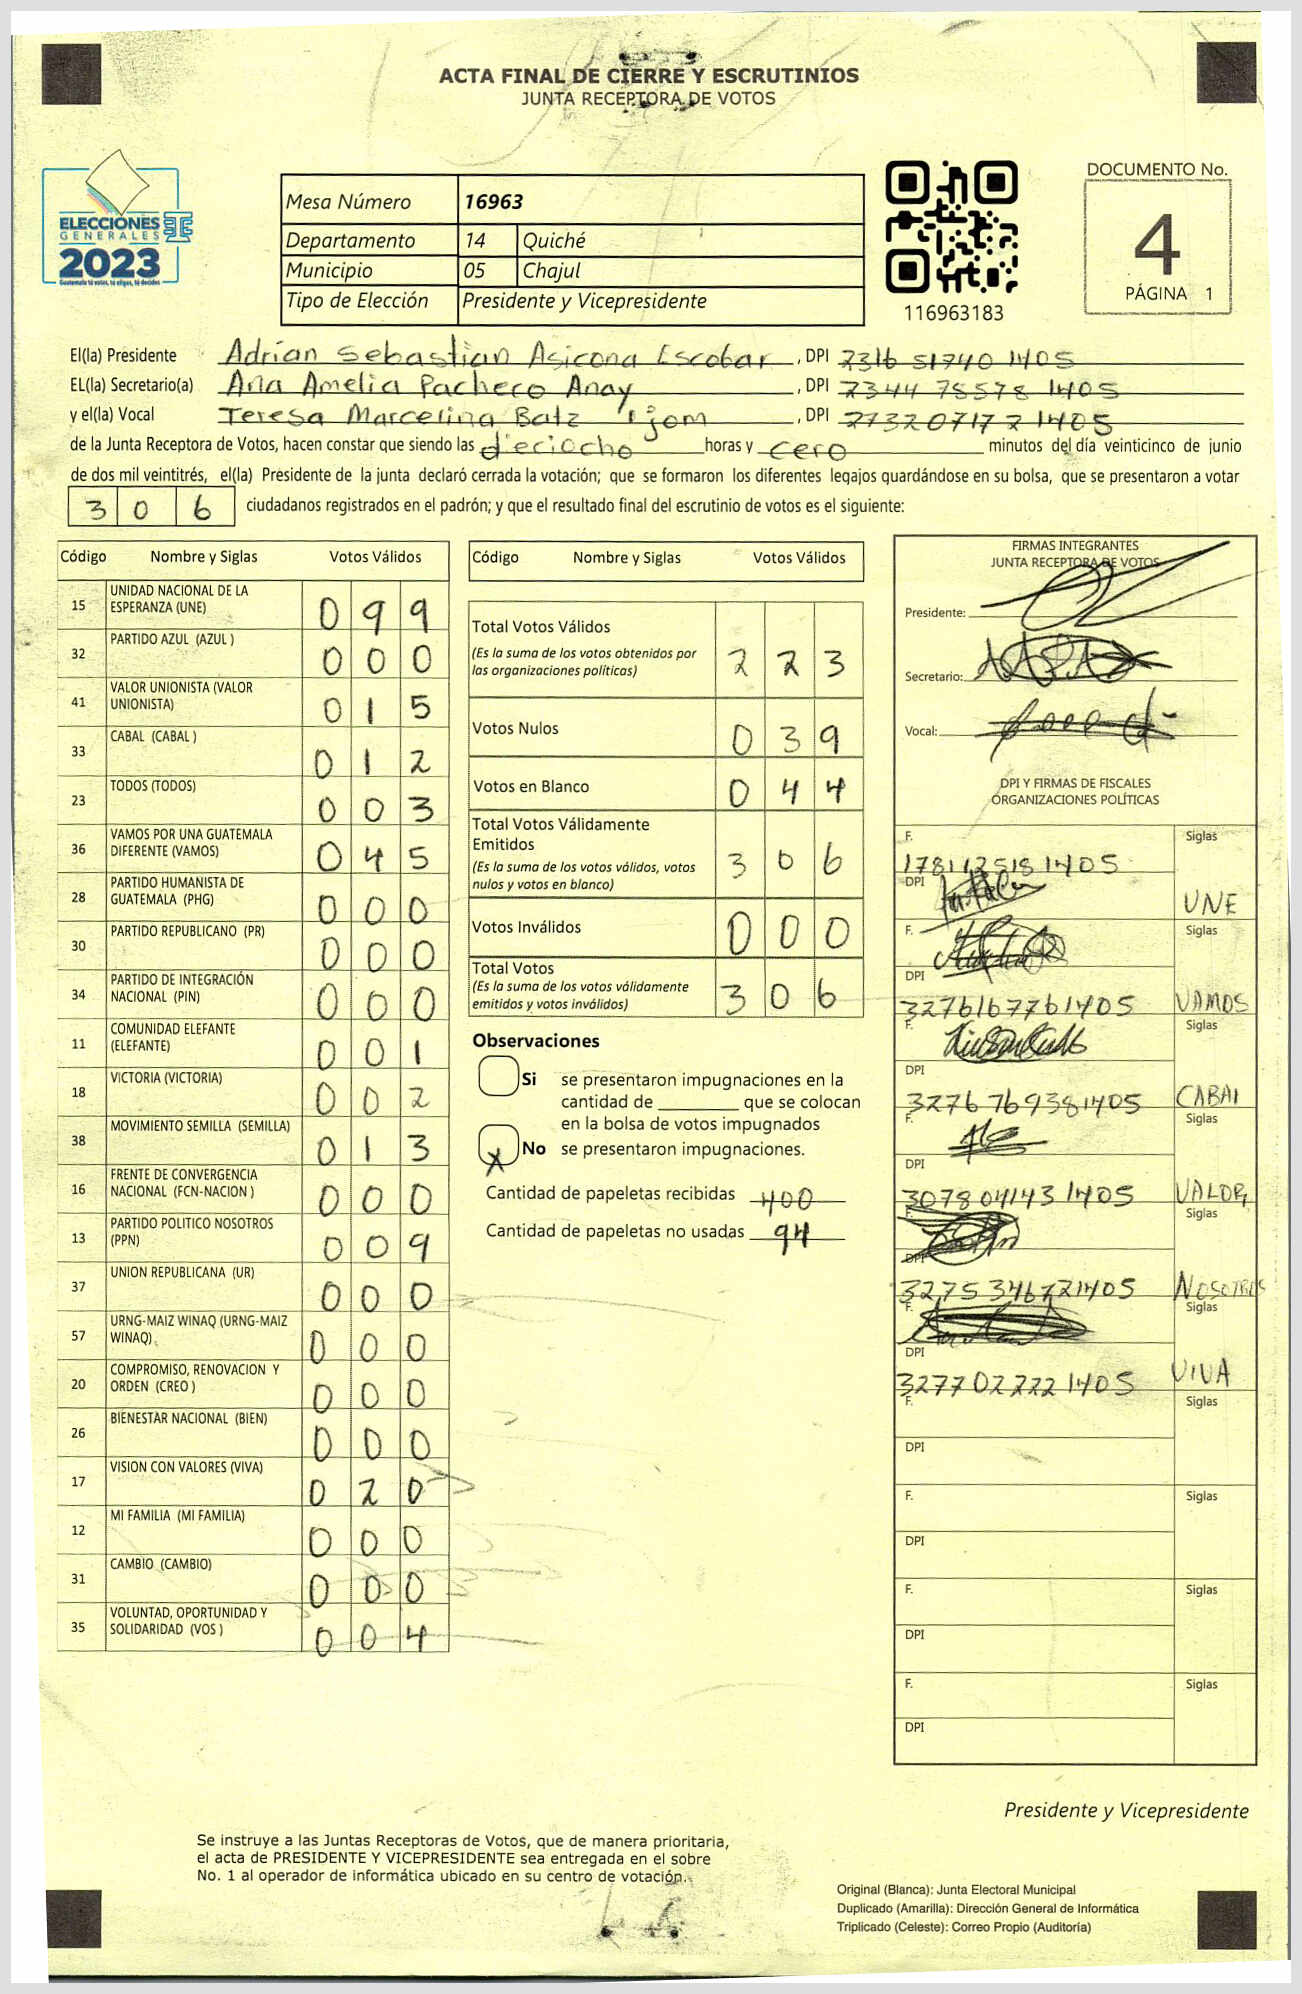 ACTA FINAL DE CIERRE Y ESCRUTINIOS
JUNTA RECEPTORA DE VOTOS
ELECCIONES
GENERALES
2023
Guatemala tú votas, tú eliges, tú decides
Mesa Número 16963
Departamento 14 Quiché
Municipio 05 Chajul
Tipo de Elección Presidente y Vicepresidente
116963183
DOCUMENTO No.
4
PÁGINA 1
El(la) Presidente Adrian Sebastian Asicona Escobar, DPI 2316 51740 1405
EL(la) Secretario(a) Ana Amelia Pacheco Anay, DPI 2344 78578 1405
y el(la) Vocal Teresa Marcelina Batz Ijom, DPI 27320717 2 1405
de la Junta Receptora de Votos, hacen constar que siendo las dieciocho horas y cero minutos del día veinticinco de junio
de dos mil veintitrés, el(la) Presidente de la junta declaró cerrada la votación; que se formaron los diferentes legajos guardándose en su bolsa, que se presentaron a votar
306 ciudadanos registrados en el padrón; y que el resultado final del escrutinio de votos es el siguiente:
Código Nombre y Siglas Votos Válidos
15 UNIDAD NACIONAL DE LA ESPERANZA (UNE) 099
32 PARTIDO AZUL (AZUL ) 000
41 VALOR UNIONISTA (VALOR UNIONISTA) 015
33 CABAL (CABAL ) 012
23 TODOS (TODOS) 003
36 VAMOS POR UNA GUATEMALA DIFERENTE (VAMOS) 045
28 PARTIDO HUMANISTA DE GUATEMALA (PHG) 000
30 PARTIDO REPUBLICANO (PR) 000
34 PARTIDO DE INTEGRACIÓN NACIONAL (PIN) 000
11 COMUNIDAD ELEFANTE (ELEFANTE) 001
18 VICTORIA (VICTORIA) 002
38 MOVIMIENTO SEMILLA (SEMILLA) 013
16 FRENTE DE CONVERGENCIA NACIONAL (FCN-NACION ) 000
13 PARTIDO POLITICO NOSOTROS (PPN) 009
37 UNION REPUBLICANA (UR) 000
57 URNG-MAIZ WINAQ (URNG-MAIZ WINAQ) 000
20 COMPROMISO, RENOVACION Y ORDEN (CREO ) 000
26 BIENESTAR NACIONAL (BIEN) 000
17 VISION CON VALORES (VIVA) 020
12 MI FAMILIA (MI FAMILIA) 000
31 CAMBIO (CAMBIO) 000
35 VOLUNTAD, OPORTUNIDAD Y SOLIDARIDAD (VOS ) 004
Código Nombre y Siglas Votos Válidos
Total Votos Válidos 223
(Es la suma de los votos obtenidos por
las organizaciones políticas)
Votos Nulos 039
Votos en Blanco 044
Total Votos Válidamente
Emitidos 306
(Es la suma de los votos válidos, votos
nulos y votos en blanco)
Votos Inválidos 000
Total Votos 306
(Es la suma de los votos válidamente
emitidos y votos inválidos)
Observaciones
Si se presentaron impugnaciones en la
cantidad de ________ que se colocan
en la bolsa de votos impugnados
X No se presentaron impugnaciones.
Cantidad de papeletas recibidas 400
Cantidad de papeletas no usadas 94
FIRMAS INTEGRANTES
JUNTA RECEPTORA DE VOTOS
Presidente:
Secretario:
Vocal:
DPI Y FIRMAS DE FISCALES
ORGANIZACIONES POLÍTICAS
F. Siglas
178112518 1405
DPI UNE
F. Siglas
DPI
3276167761405 VAMOS
F. Siglas
DPI
3276769381405 CABAL
F. Siglas
DPI
3078041431405 VALOR
F. Siglas
DPI
3275346721405 NOSOTROS
F. Siglas
DPI
3277022221405 VIVA
F. Siglas
DPI
F. Siglas
DPI
F. Siglas
DPI
F. Siglas
DPI
Presidente y Vicepresidente
Se instruye a las Juntas Receptoras de Votos, que de manera prioritaria,
el acta de PRESIDENTE Y VICEPRESIDENTE sea entregada en el sobre
No. 1 al operador de informática ubicado en su centro de votación.
Original (Blanca): Junta Electoral Municipal
Duplicado (Amarilla): Dirección General de Informática
Triplicado (Celeste): Correo Propio (Auditoría)